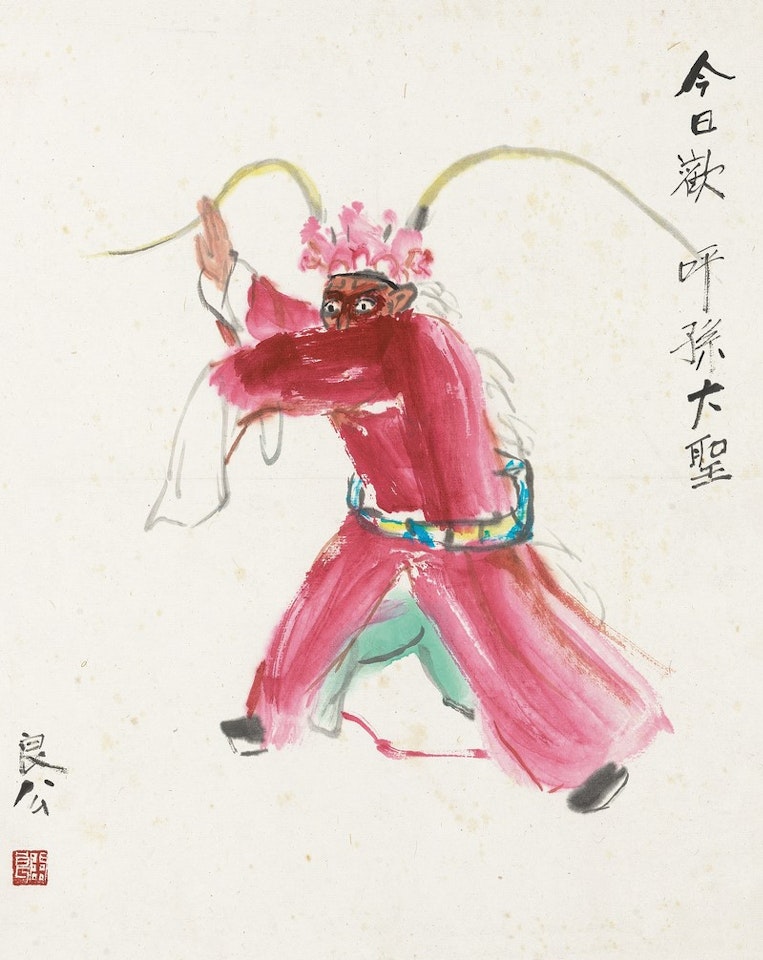 今日歡呼孫大聖
良公
關良